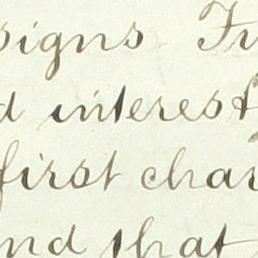 signs Fu
d interest
first char
nd that